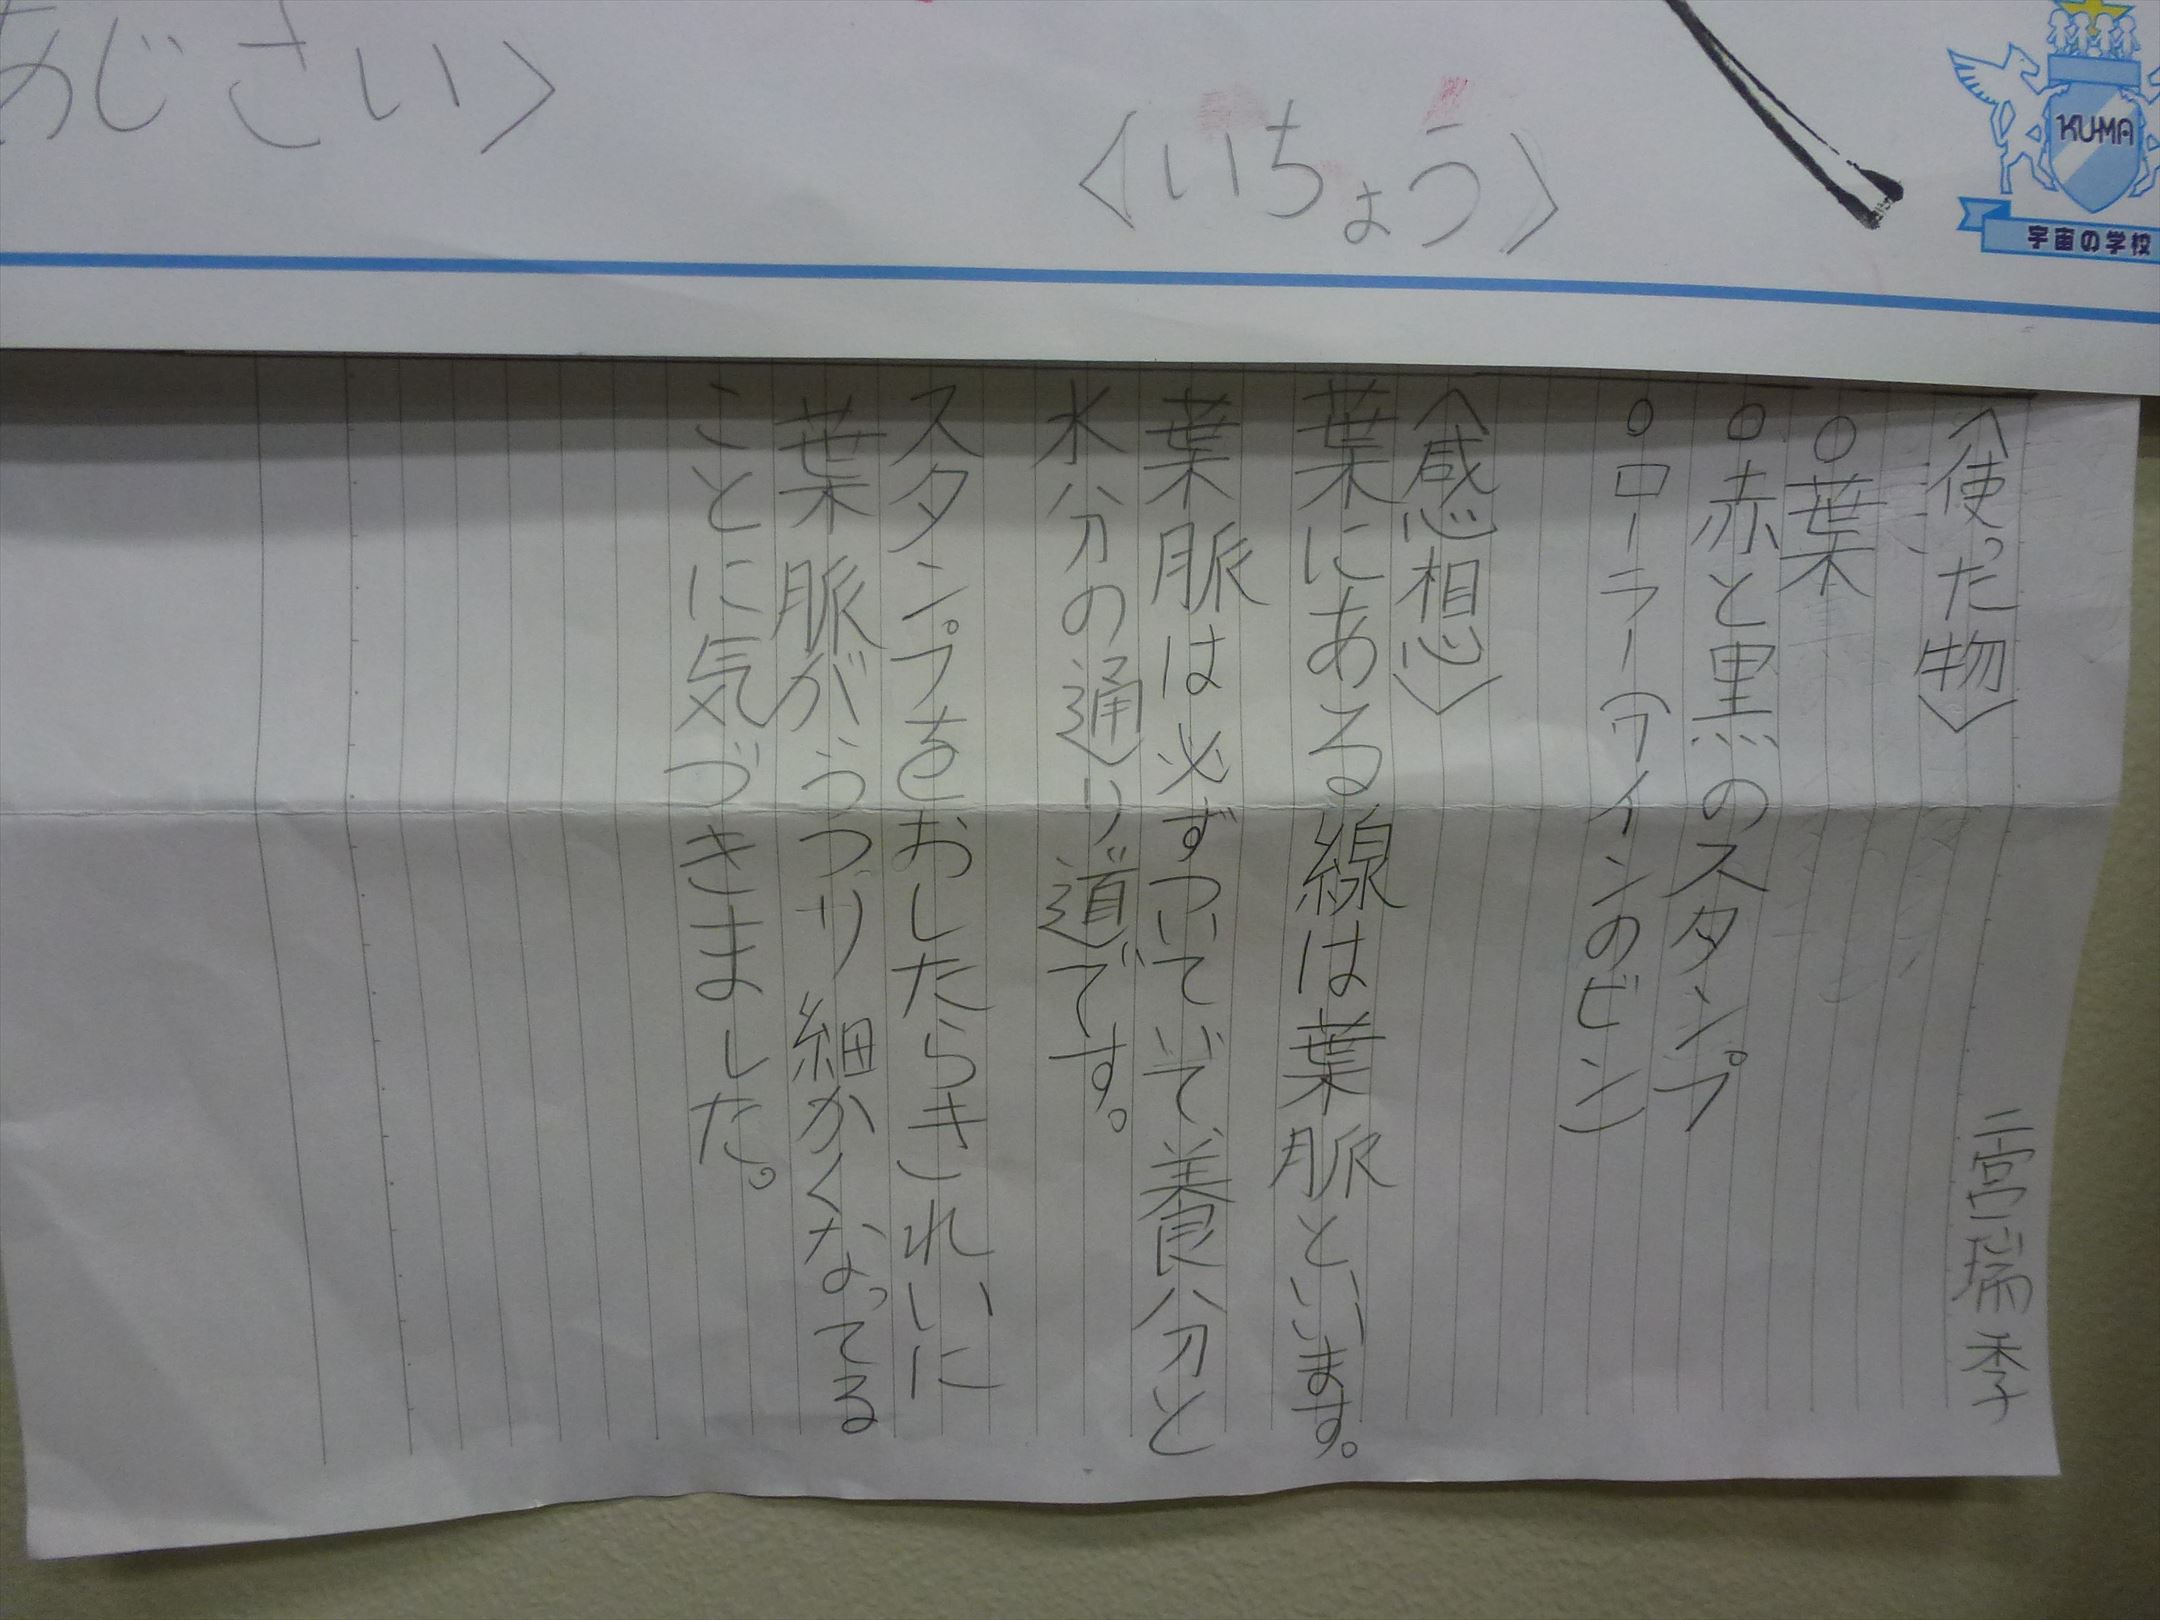 あじさい〉
〈いちょう〉
KU-MA
宇宙の学校
〈使った物〉
二宮瑞季
○葉
○赤と黒のスタンプ
○ローラー(ワインのビン)
〈感想〉
葉にある線は葉脈といいます。
葉脈は必ずついていて養分と
水分の通り道です。
スタンプをおしたらきれいに
葉脈がうつり細かくなってる
ことに気づきました。